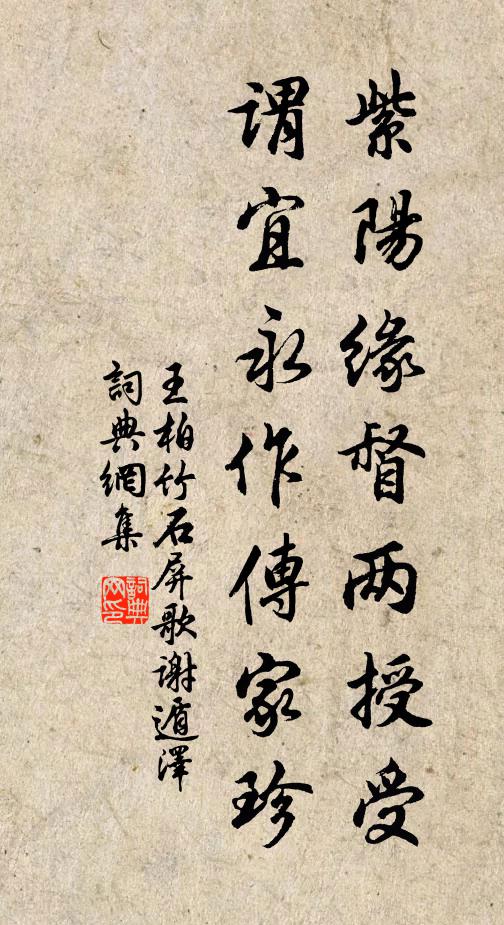 紫陽緣督两授受
謂宜永作傳家珍
王柏竹石屏歌謝遁澤
詞典網集
詞典
网印